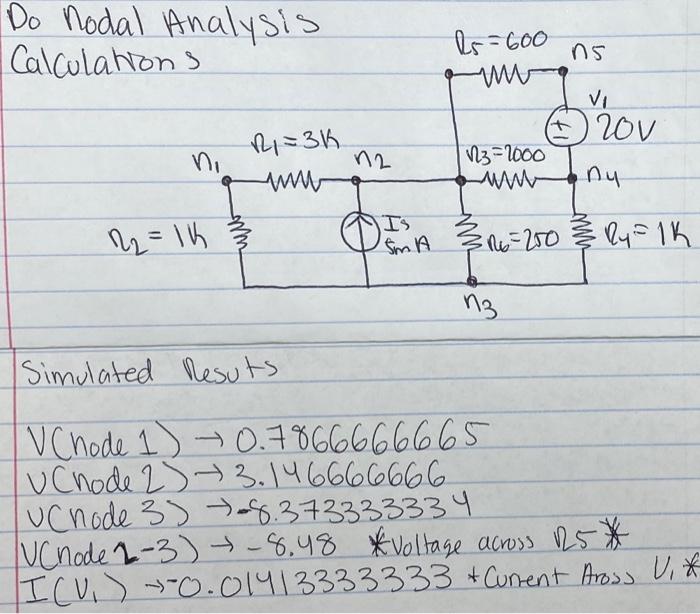 Do Nodal Analysis
Calculations
R5=600
n5
V1
20V
R1=3K
n1
n2
R3=2000
n4
R2=1K
Is
5mA
R6=250
R4=1K
n3
Simulated Resuts
V(node 1) → 0.7866666665
V(node 2) → 3.146666666
V(node 3) → -8.3733333334
V(node 2-3) → -8.48 *Voltage across R5*
I(V1) → -0.01413333333 *Current Aross V1*